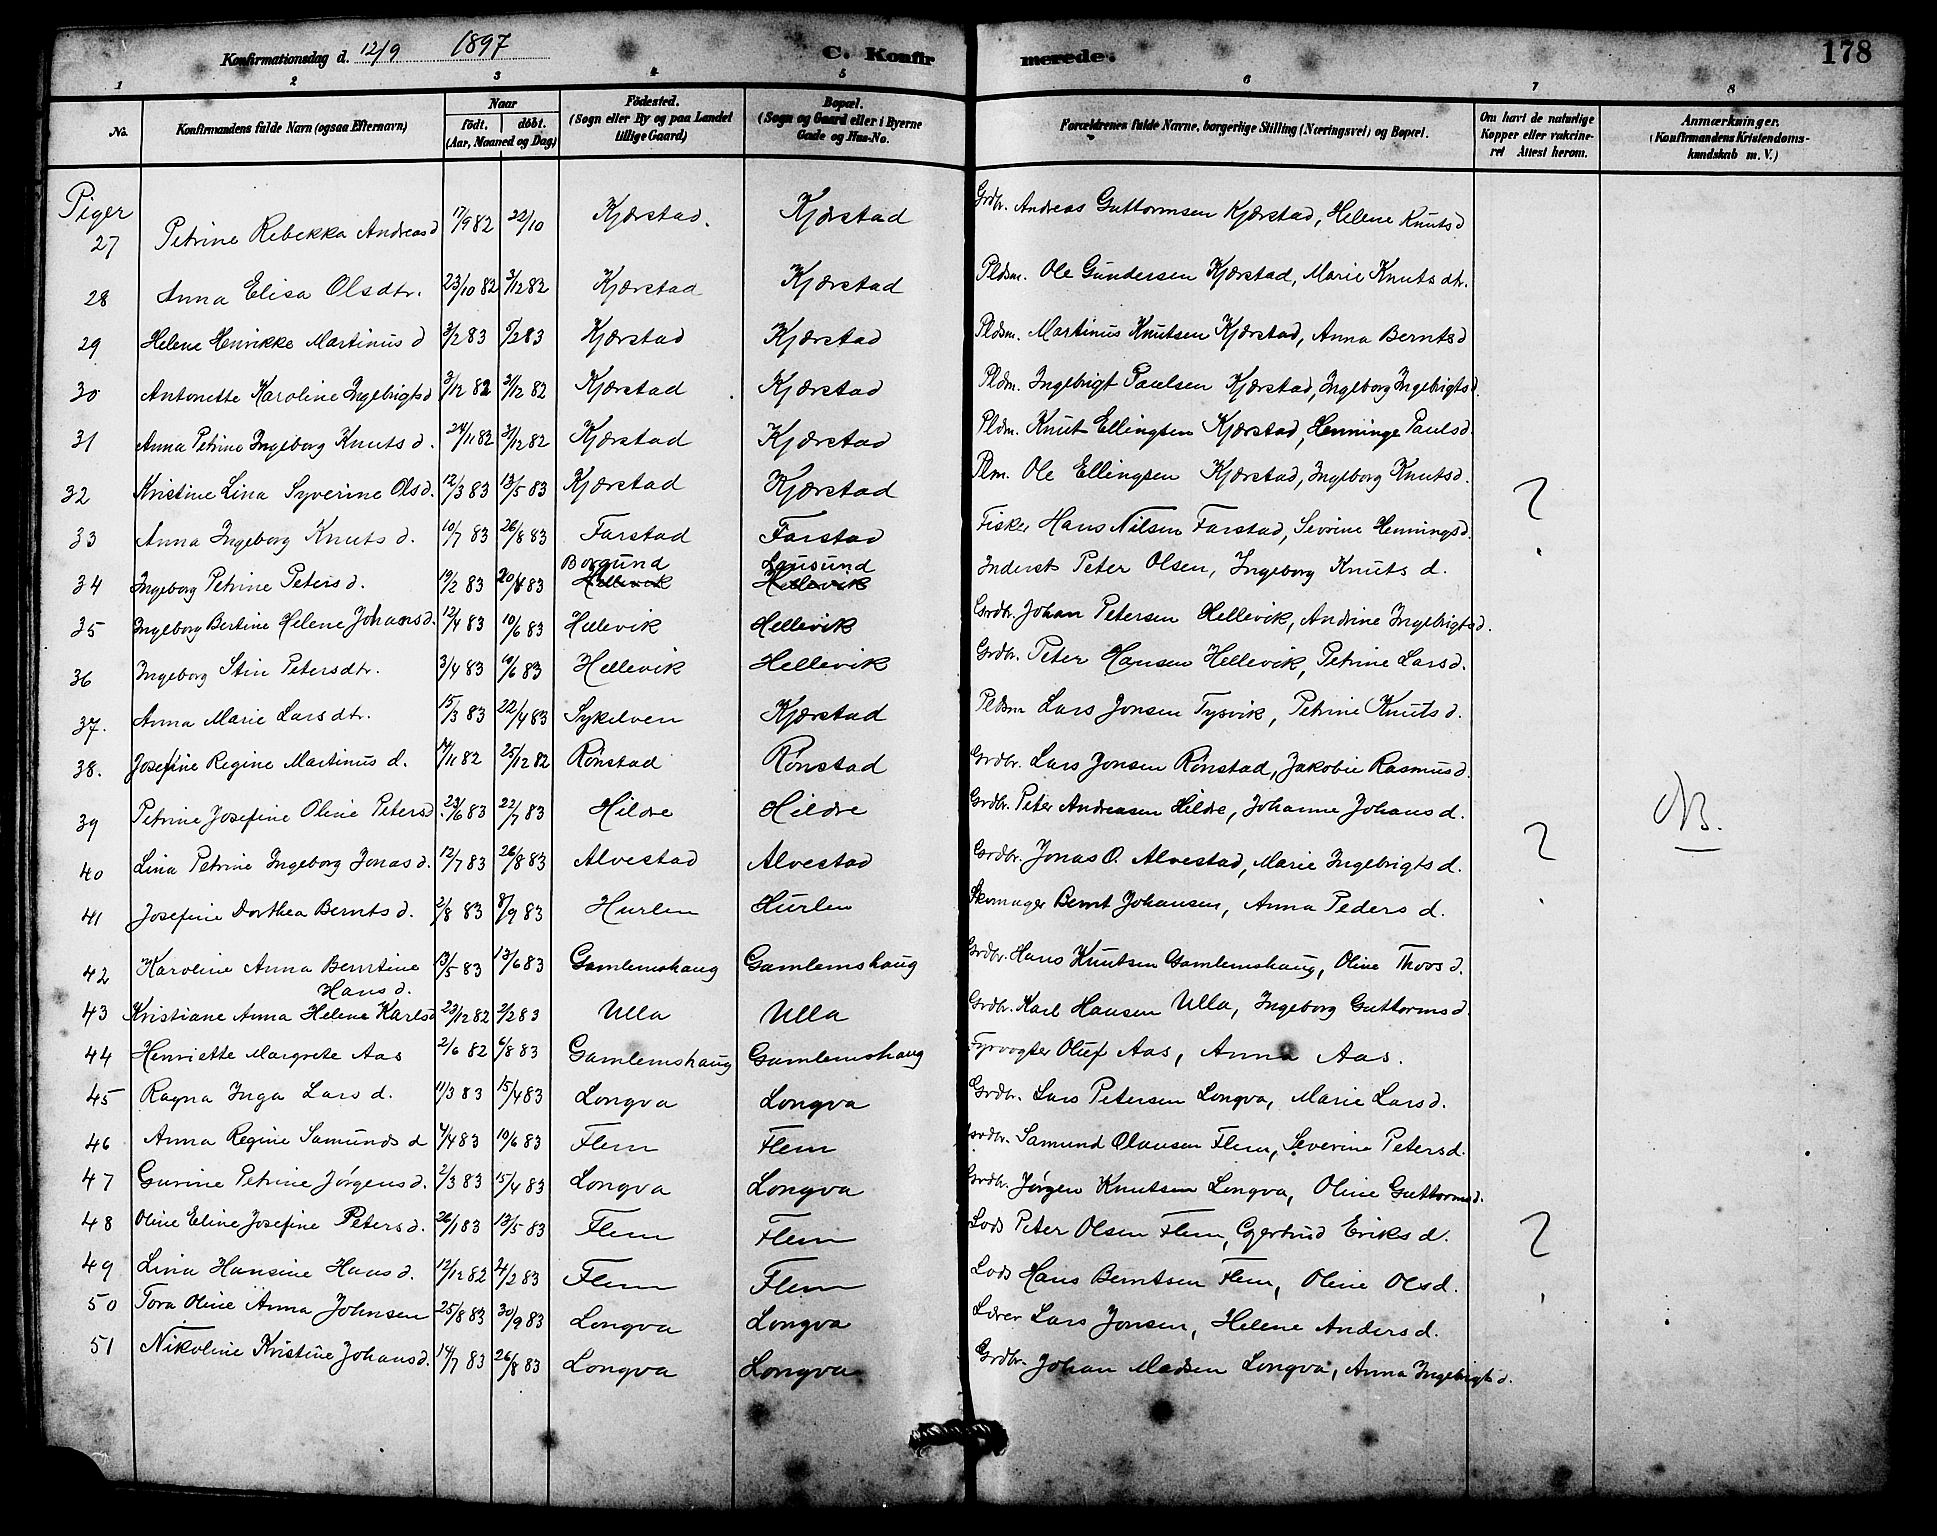 Konfirmationsdag d. 12/9 1897 C. Konfirmerede. 178
1 2 3 4 5 6 7 8
No. Konfirmandens fulde Navn (ogsaa Efternavn) Naar födt, döbt. (Aar, Maaned og Dag) Födested. (Sogn eller By og paa Landet tillige Gaard) Bopæl. (Sogn og Gaard eller i Byerne Gade og Hus-No. Forældrenes fulde Navne, borgerlige Stilling (Næringsvei) og Bopæl. Om havt de naturlige Kopper eller vakcineret Attest herom. Anmærkninger. (Konfirmandens Kristendomskundskab m. V.)
Piger
27 Petrine Rebekka Andreasd 17/9 82 22/10 Kjærstad. Kjærstad Grdbr. Andreas Guttormsen Kjærstad, Helene Knutsd
28 Anna Elisa Olsdtr. 23/10 82 3/12 82 Kjærstad Kjærstad Pldsm. Ole Gundersen Kjærstad, Marie Knutsdtr.
29 Helene Henrikke Martinusd 3/2 83 /2 83 Kjærstad Kjærstad Pldsm. Martinus Knutsen Kjærstad, Anna Berntsd
30 Antonette Karoline Ingebrigtsd 3/12 82 31/12 82 Kjærstad Kjærstad Pldm. Ingebrigt Paulsen Kjærstad, Ingeborg Ingebrigtsd.
31 Anna Petrine Ingeborg Knutsd. 24/11 82 31/12 82 Kjærstad Kjærstad Pldm. Knut Ellingsen Kjærstad, Henninge Paulsd.
32 Kristine Lina Syverine Olsd. 12/3 83 13/5 83 Kjærstad Kjærstad Plm. Ole Ellingsen Kjærstad, Ingeborg Knutsd. ?
33 Anna Ingeborg Knutsd. 10/7 83 26/8 83 Farstad Farstad Fisker Hans Nilsen Farstad, Sevrine Henningsd.
34 Ingeborg Petrine Petersd. 19/2 83 20/4 83 Borgund Hellevik Lausund Hellevik Inderst Peter Olsen, Ingeborg Knutsd.
35 Ingeborg Bertine Helene Johansd. 12/4 83 10/6 83 Hellevik Hellevik Grdbr. Johan Petersen Hellevik, Andrine Ingebrigtsd.
36 Ingeborg Stin Petersdtr. 3/4 83 10/6 83 Hellevik Hellevik Grdbr. Peter Hansen Hellevik, Petrine Larsd.
37. Anna Marie Larsdtr. 15/3 83 22/4 83 Sykelven Kjærstad Pldsm Lars Jonsen Tysvik, Petrine Knutsd.
38. Josefine Regine Martinusd. 17/11 82 25/12 82 Rönstad Rönstad Grdbr. Lars Jonsen Rönstad, Jakobie Rasmusd
39 Petrine Josefine Oline Petersd. 23/6 83 22/7 83 Hildre Hildre Grdbr. Peter Andreasen Hildre, Johanne Johansd. NB.
40 Lina Petrine Ingeborg Jonasd. 12/7 83 26/8 83 Alvestad Alvestad Grdbr. Jonas O. Alvestad, Marie Ingebrigtsd. ?
41 Josefine Dorthea Berntsd. 2/8 83 8/9 83 Hurlen Hurlen Skomager Bernt Johansen, Anna Pedersd.
42 Karoline Anna Berntine Hansd. 13/5 83 13/6 83 Gamlemshaug Gamlemshaug Grdbr. Hans Knutsen Gamlemshaug, Oline Thorsd.
43 Kristiane Anna Helene Karlsd 23/12 82 2/2 83 Ulla Ulla Grdbr. Karl Hansen Ulla, Ingeborg Guttormsd.
44 Henriette Margrete Aas 2/6 82 6/8 83 Gamlemshaug Gamlemshaug Fyrvogter Oluf Aas, Anna Aas.
45 Ragna Inga Larsd. 11/3 83 15/4 83 Longva Longva Grdbr. Lars Petersen Longva, Marie Larsd.
46 Anna Regine Samundsd /4 83 10/6 83 Flem Flem Grdbr. Samund Olausen Flem, Severine Petersd.
47 Gurine Petrine Jörgensd. 2/3 83 15/4 83 Longva Longva Grdbr. Jörgen Knutsen Longva, Oline Guttormsd.
48 Oline Eline Josefine Petersd. 26/1 83 13/5 83 Flem Flem Lods Peter Olsen Flem, Gjertrud Eriksd. ?
49 Lina Hansine Hansd. 12/12 82 4/2 83 Flem Flem Lods Hans Berntsen Flem, Oline Olsd.
50 Tora Oline Anna Johnsen 25/8 83 30/9 83 Longva Longva Lærer Lars Jonsen, Helene Andersd.
51 Nikoline Kristine Johansd. 14/7 83 26/8 83 Longva Longva Grdbr. Johan Madsen Longva, Anna Ingebrigtsd.